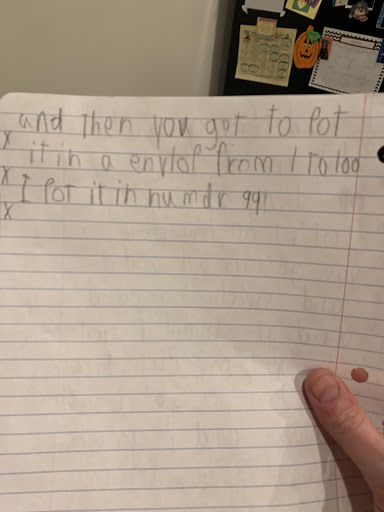 and Then you get to Pot
x it in a envlof from 1 to 100
x I Pot it in numdr 99
x